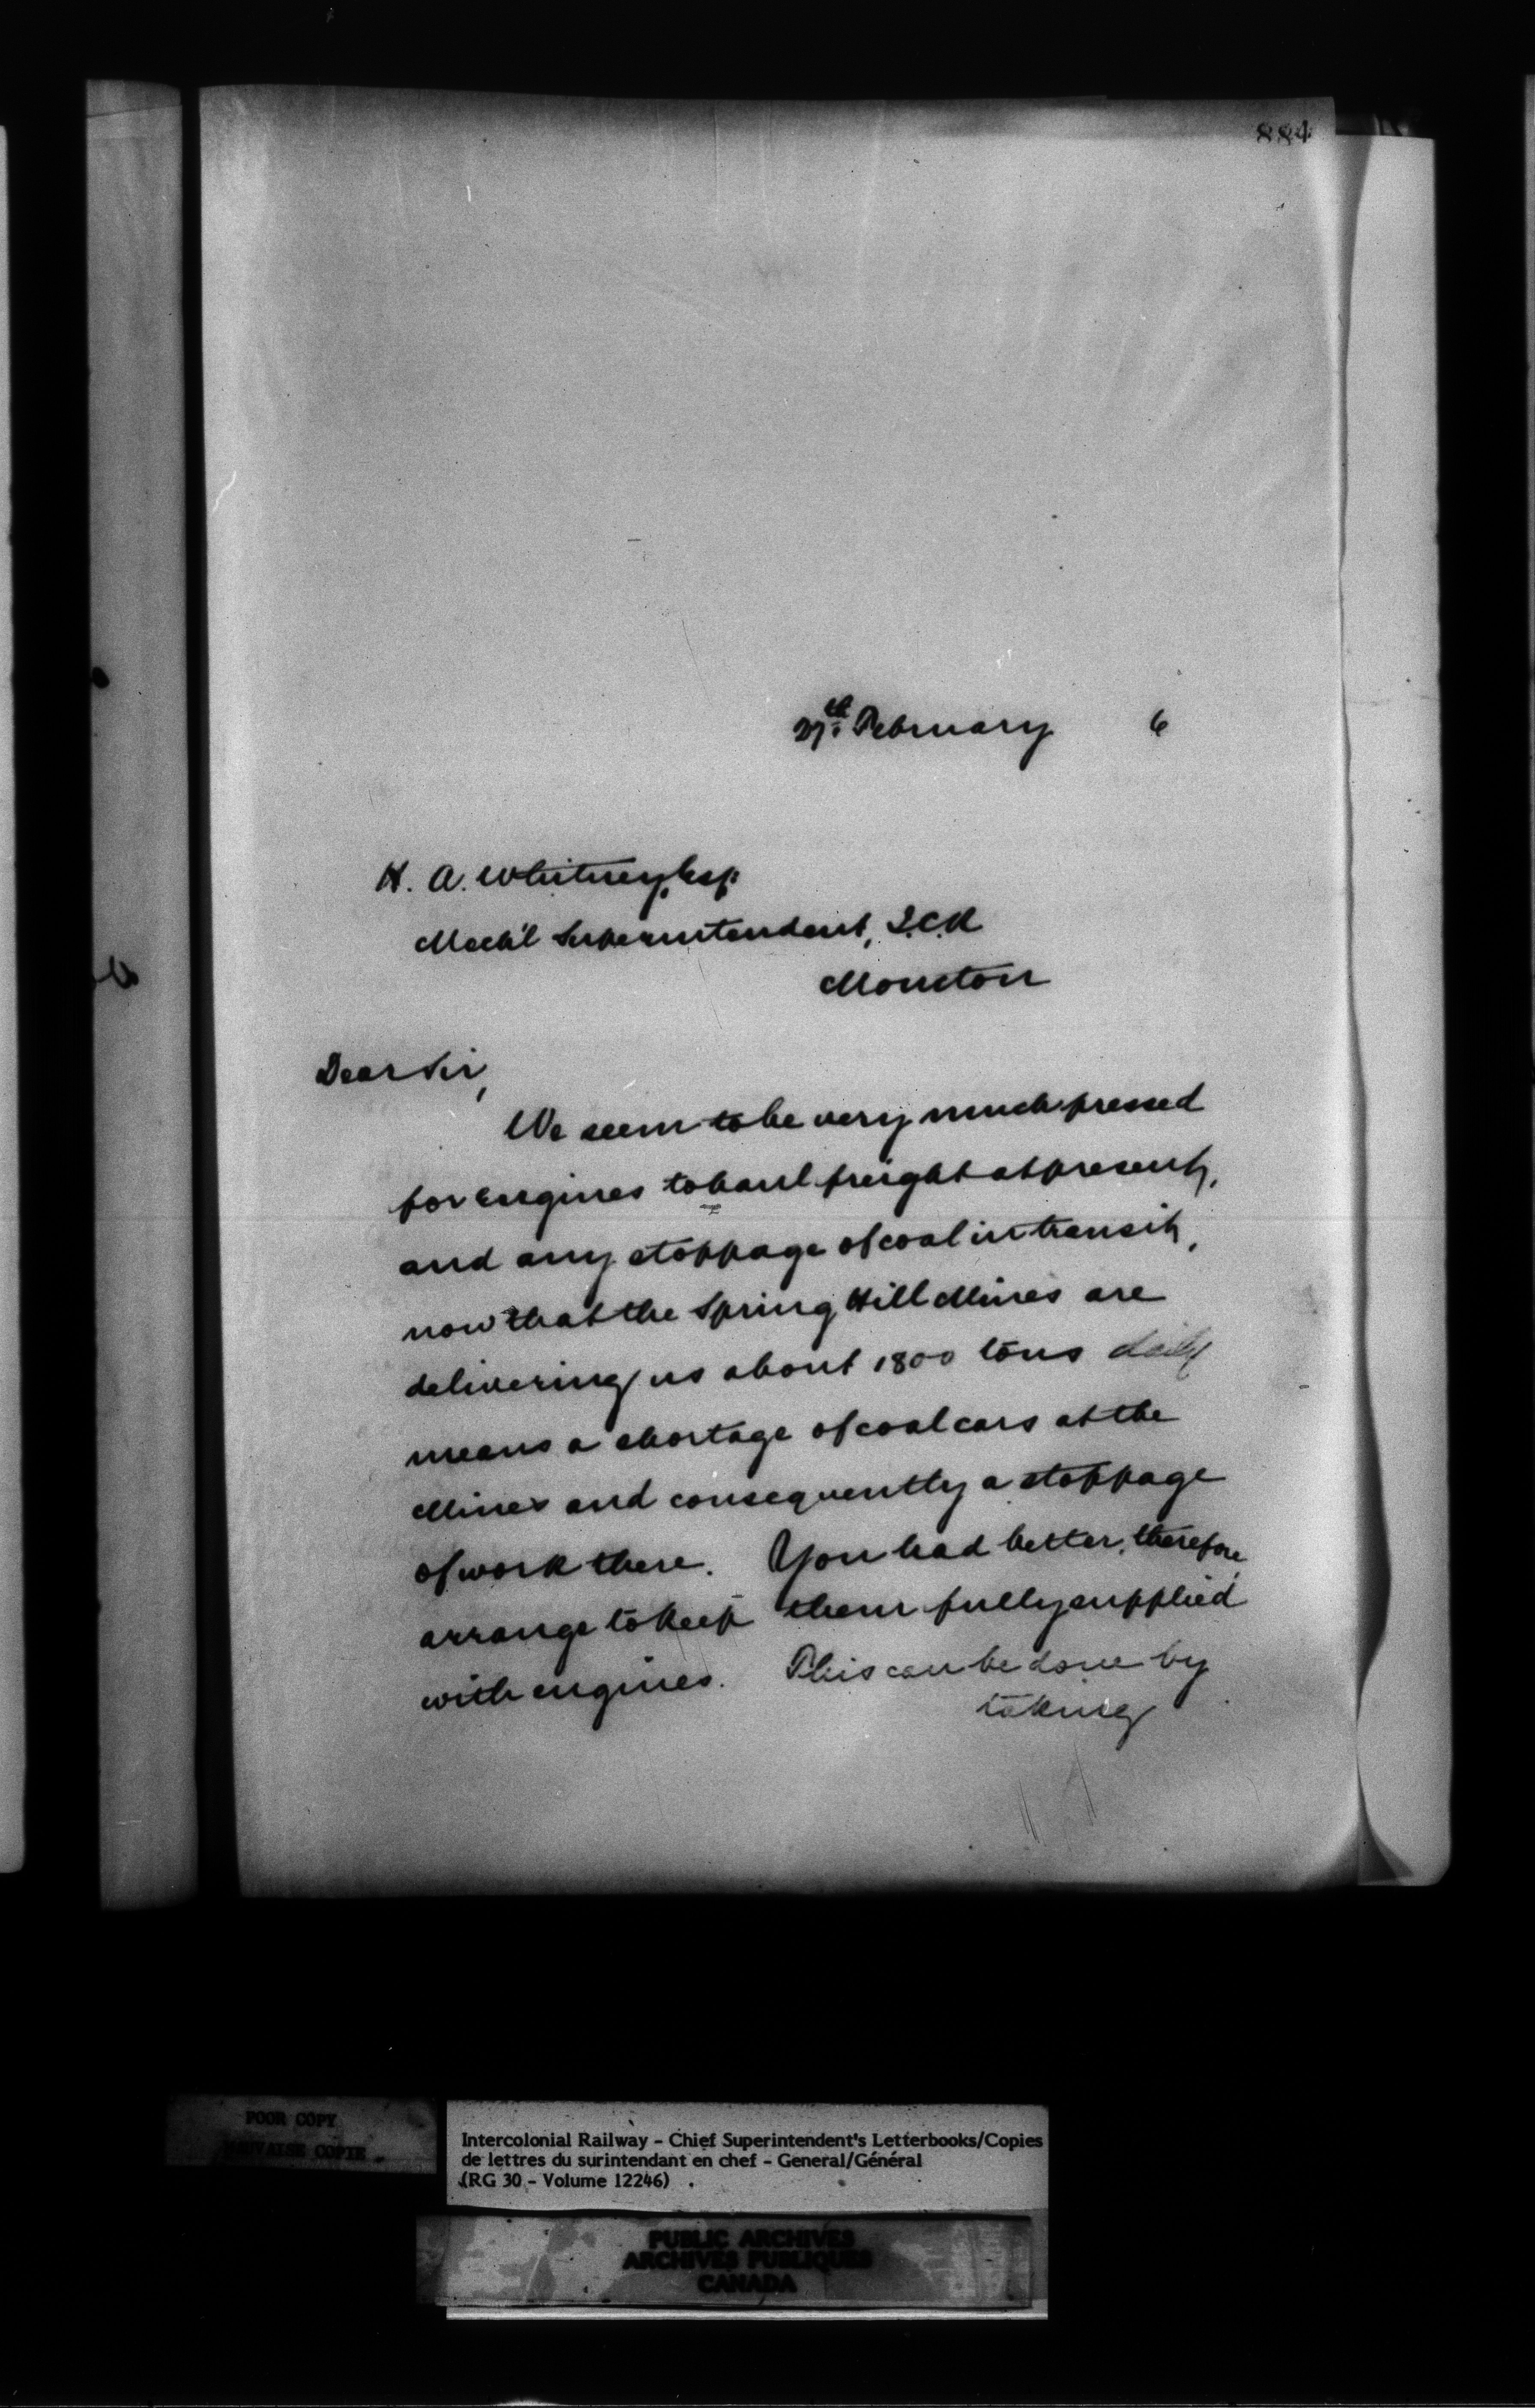 884
27th February 6
H. A. Whitney, Esq.
Mech'l Superintendent, I.C.R
Moncton
Dear Sir,
We seem to be very much pressed
for engines to haul freight at present,
and any stoppage of coal in transit,
now that the Spring Hill Mines are
delivering us about 1800 tons daily
means a shortage of coal cars at the
Mines and consequently a stoppage
of work there. You had better, therefore,
arrange to keep them fully supplied
with engines. This can be done by
taking
POOR COPY
MAUVAISE COPIE
Intercolonial Railway - Chief Superintendent's Letterbooks/Copies
de lettres du surintendant en chef - General/Général
(RG 30 - Volume 12246) .
PUBLIC ARCHIVES
ARCHIVES PUBLIQUES
CANADA